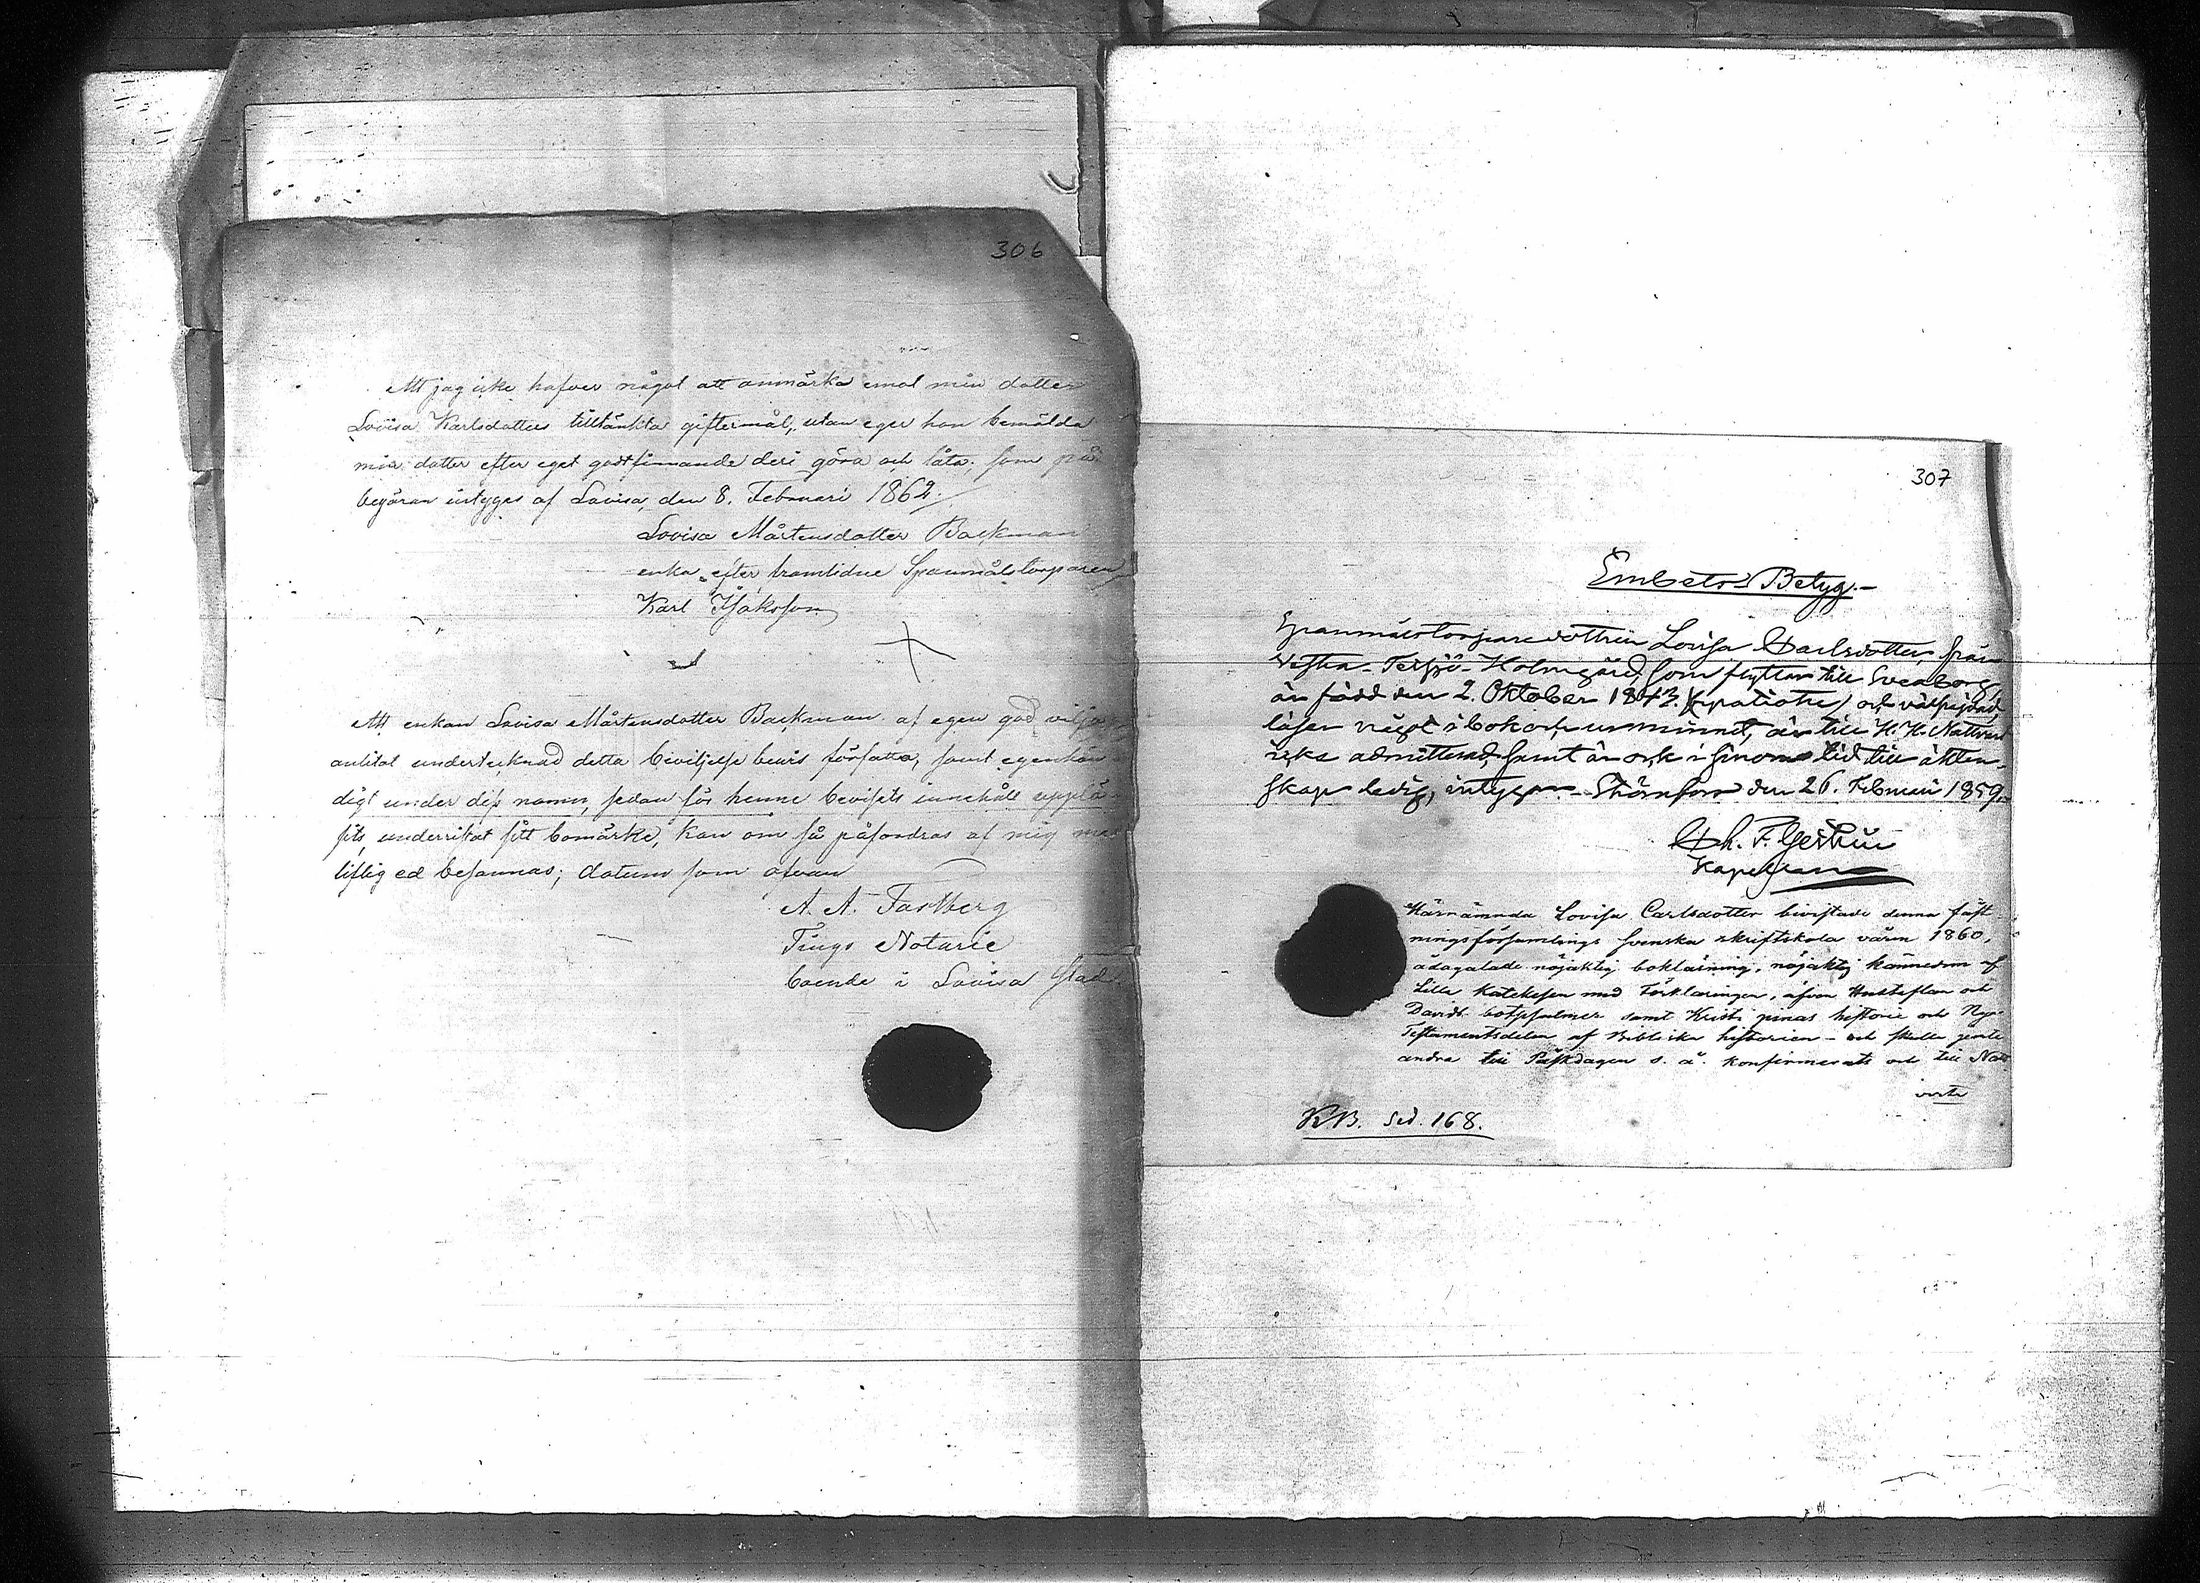 306
Att jag icke hafver något att anmärka emot min dotter
Lovisa Karlsdotters tilltänkta giftermål, utan eger hon bemälda
min dotter efter eget godtfinnande deri göra och låta; som på
begäran intygas af Lovisa, den 8. Februari 1862.
Lovisa Mårtensdotter Backman
enka efter framlidne Spanmålstorparen
Karl Isaksson
Att enkan Lovisa Mårtensdotter Backman af egen god vilja
anlitat undertecknad detta beviljelse bevis författa, samt egenhän
digt under dess namn, sedan för henne bevisets innehåll upplä
sits, underritat sitt bomärke, kan om så påfordras af mig med
liflig ed besannas; datum som ofvan
A. A. Fastberg
Tings Notarie
boende i Lovisa Stad.
307
Embets Betyg.-
Spanmålstorparedottren Lovisa Carlsdotter, från
Vestra Tersjö Holmgård, som flyttar till Sveaborg,
är född den 2. Oktober 1843. och välfrejdad,
läser något i bok och ur minnet, är till H. H. Nattvard
icke admitterad, samt är ock i sinom tid till äkten-
skap ledig, intygar. den 26. Februari 1859.
Ch. F.
Kapellan
Härnämnda Lovisa Carlsdotter bivistade denna fäst-
ningsförsamlings svenska skriftskola våren 1860,
ådagalade nöjaktig boklärning, nöjaktig kännedom af
Lilla Katekesen med Förklaringen, äfven Hustaflan och
Davids botpsalmer samt Kristi pinas historie och Nya
Testamentsdelen af Bibliska historien - och skulle jemte
andra till Påskdagen s. å. konfirmerats och till Natt
verte
KB. Sid. 168.